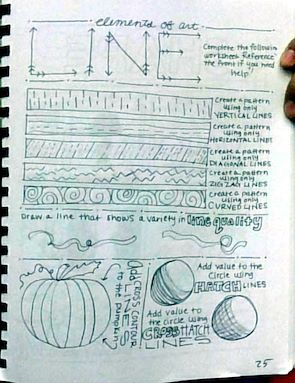 elements of art
LINE
Complete the following
worksheet. Reference
the front if you need
help!
Create a pattern
using only
VERTICAL LINES
Create a pattern
using only
HORIZONTAL LINES
Create a pattern
using only
DIAGONAL LINES
Create a pattern
using only
ZIGZAG LINES
Create a pattern
using only
CURVED LINES
Draw a line that shows a variety in line quality
Add CROSS CONTOUR
LINES
to the pumpkin
Add value to the
Circle using
HATCH LINES
Add value to the
circle using
CROSS HATCH
LINES
25